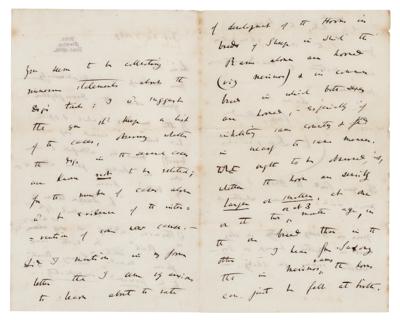 You seem to be collecting
numerous statements about the
dog's tail; I suggest
the you keep a list
of the cases, observing whether
the dogs in the several cases
are known not to be related;
for the number of cases alone
is evidence of the inter-
-vention of some new cause.—
Did I mention in my former
letter that I am very anxious
to learn about the rate
of development of the Horns in
breeds of Sheep in which the
Rams alone are horned
(viz merinos) & in common
breed in which both sexes
are horned;— especially if
visibility same country & feed
in nearly the same manner.
ought to be observed is,
whether the horns are sensibly
larger or smaller, at one
or at 3
or the two months age, in
the one breed than in the
other. I hear from Saxony
that in merinos, rams the horns
can just be felt at birth.